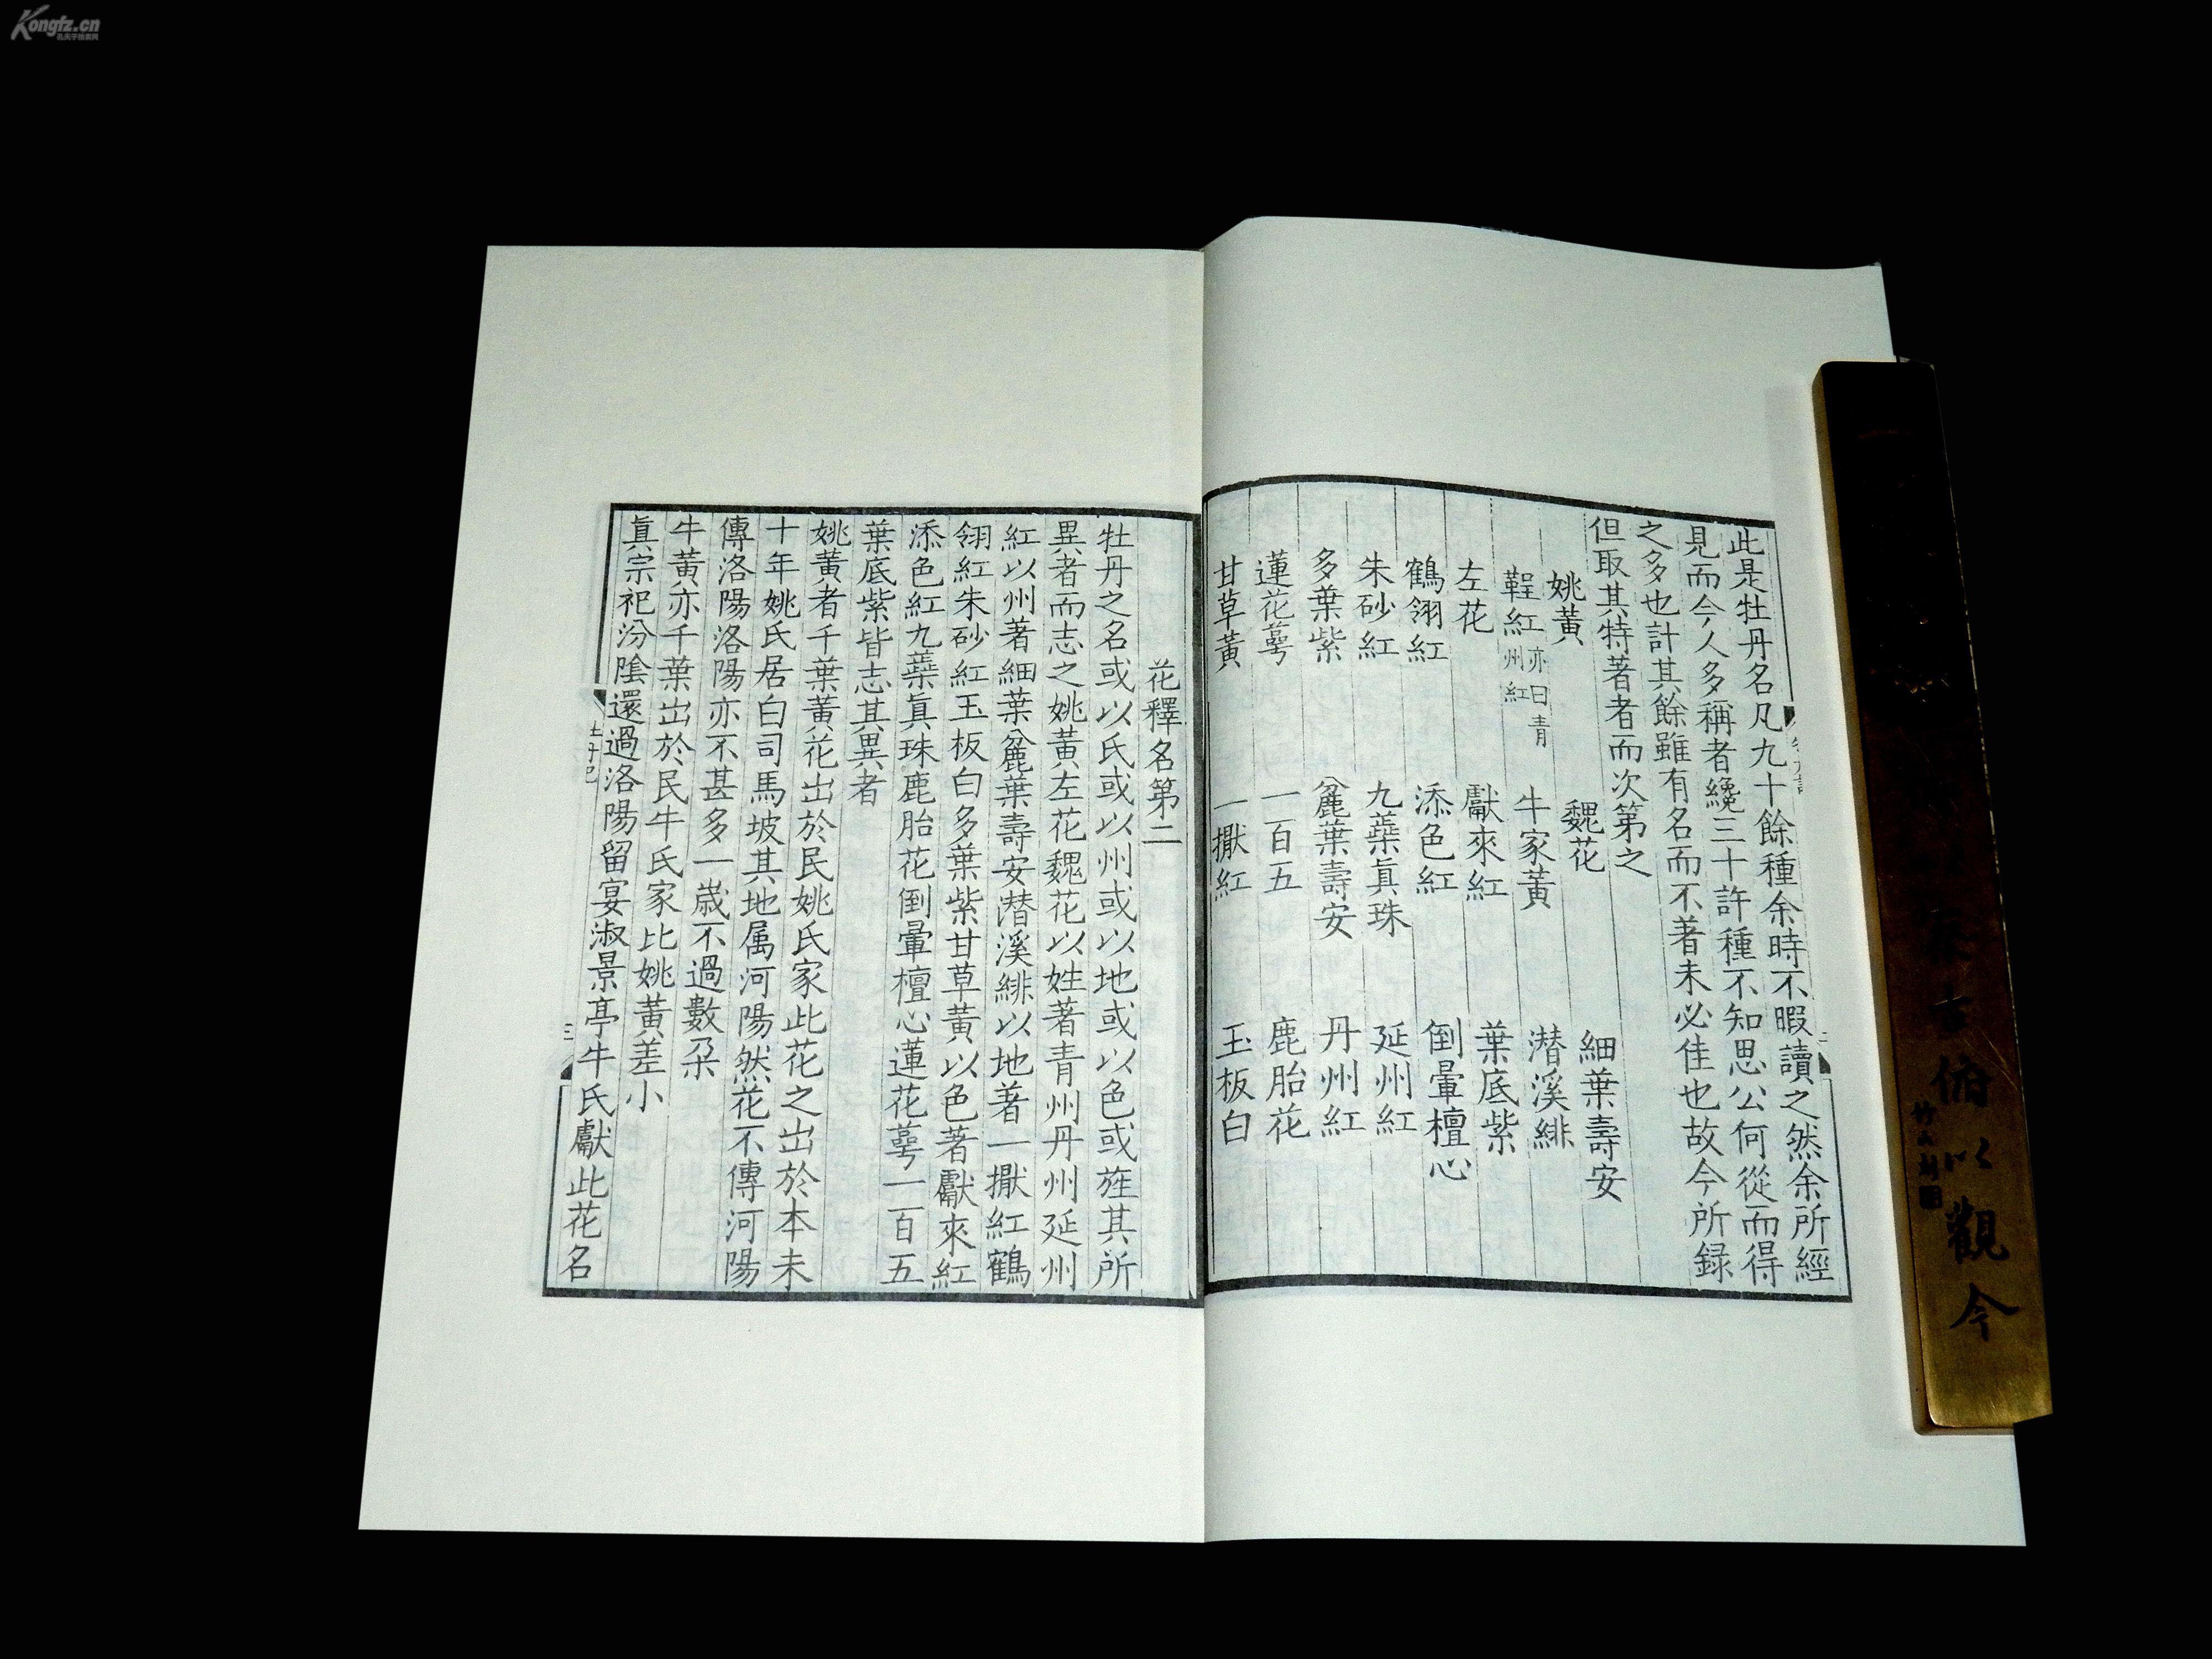 此是牡丹名凡九十餘種余時不暇讀之然余所經
見而今人多稱者纔三十許種不知思公何從而得
之多也計其餘雖有名而不著未必佳也故今所録
但取其特著者而次第之
姚黃 魏花 細葉壽安
鞓紅亦曰青州紅 牛家黃 潛溪緋
左花 獻來紅 葉底紫
鶴翎紅 添色紅 倒暈檀心
朱砂紅 九蘂眞珠 延州紅
多葉紫 麄葉壽安 丹州紅
蓮花萼 一百五 鹿胎花
甘草黃 一擫紅 玉板白
花釋名第二
牡丹之名或以氏或以州或以地或以色或旌其所
異者而志之姚黃左花魏花以姓著青州丹州延州
紅以州著細葉麄葉壽安潛溪緋以地著一擫紅鶴
翎紅朱砂紅玉板白多葉紫甘草黃以色著獻來紅
添色紅九蘂眞珠鹿胎花倒暈檀心蓮花萼一百五
葉底紫皆志其異者
姚黃者千葉黃花出於民姚氏家此花之出於本未
十年姚氏居白司馬坡其地属河陽然花不傳河陽
傳洛陽洛陽亦不甚多一歳不過數朶
牛黃亦千葉出於民牛氏家比姚黃差小
眞宗祀汾陰還過洛陽留宴淑景亭牛氏獻此花名
牡丹記
三
俯以觀今
Kongfz.cn